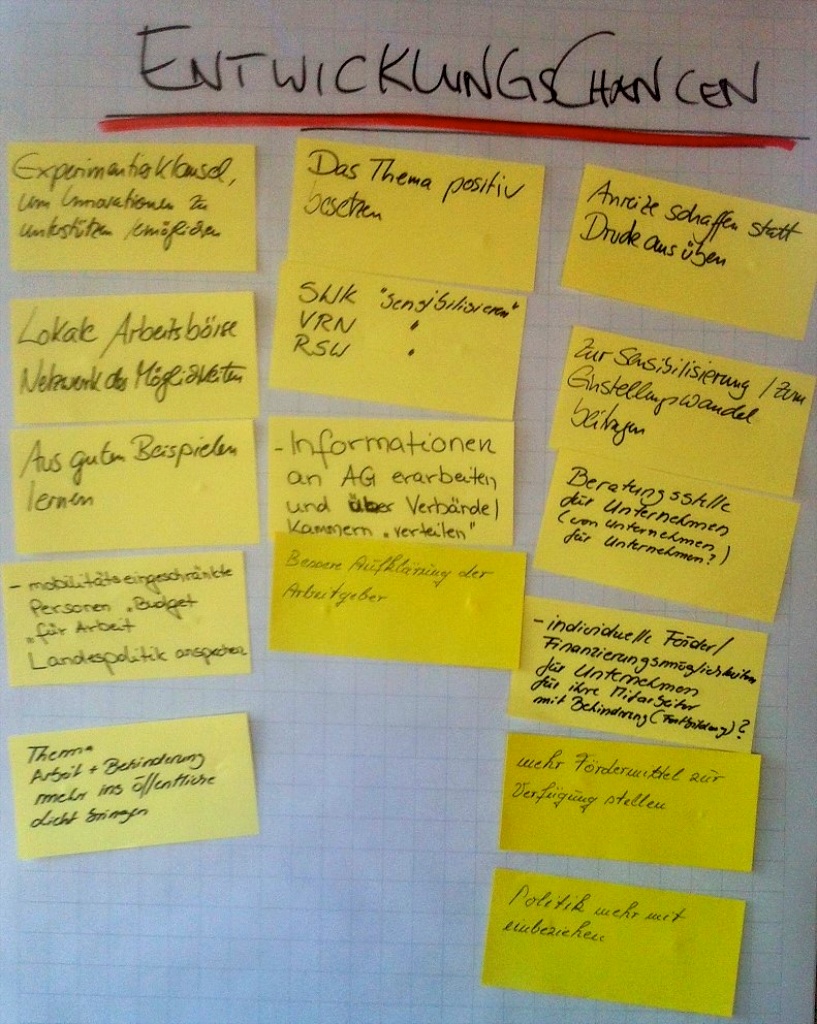 ENTWICKLUNGSCHANCEN
Experimentierklausel,
um Innovationen zu
unterstützen/ermöglichen
Lokale Arbeitsbörse
Netzwerk der Möglichkeiten
Aus guten Beispielen
lernen
- mobilitätseingeschränkte
Personen „Budget
„für Arbeit
Landespolitik ansprechen
Thema
Arbeit + Behinderung
mehr ins öffentliche
Licht bringen
Das Thema positiv
besetzen
SWK "sensibilisieren"
VRN "
RSW "
- Informationen
an AG erarbeiten
und über Verbände/
Kammern „verteilen"
Bessere Aufklärung der
Arbeitgeber
Anreize schaffen statt
Druck ausüben
Zur Sensibilisierung / zum
Einstellungswandel
beitragen
Beratungsstelle
für Unternehmen
(von Unternehmen
für Unternehmen?)
- individuelle Förder/
Finanzierungsmöglichkeiten
für Unternehmen
für ihre Mitarbeiter
mit Behinderung (Fortbildung)?
mehr Fördermittel zur
Verfügung stellen
Politik mehr mit
einbeziehen